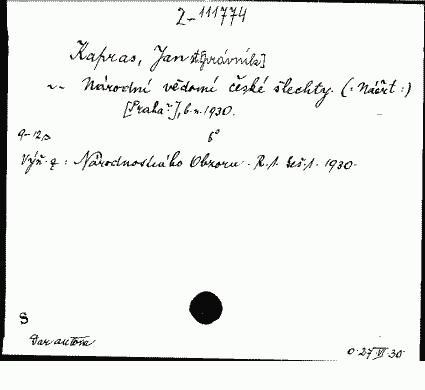 Z-111774
Kapras, Jan [právník]
~~ Národní vědomí české šlechty. (: Náčrt :)
[Praha?], b. n. 1930.
9-12 s. 8°
Výň. z: Národnostního Obzoru. R. 1. Seš. 1. 1930.
S
Dar autora
0. 27 VI 30.